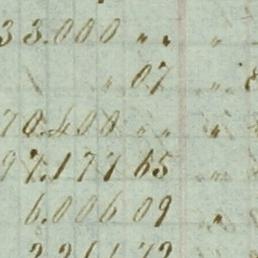 33.000 " " "
" 07 "
70.400 " " "
97.177 65 "
6.006 09 "